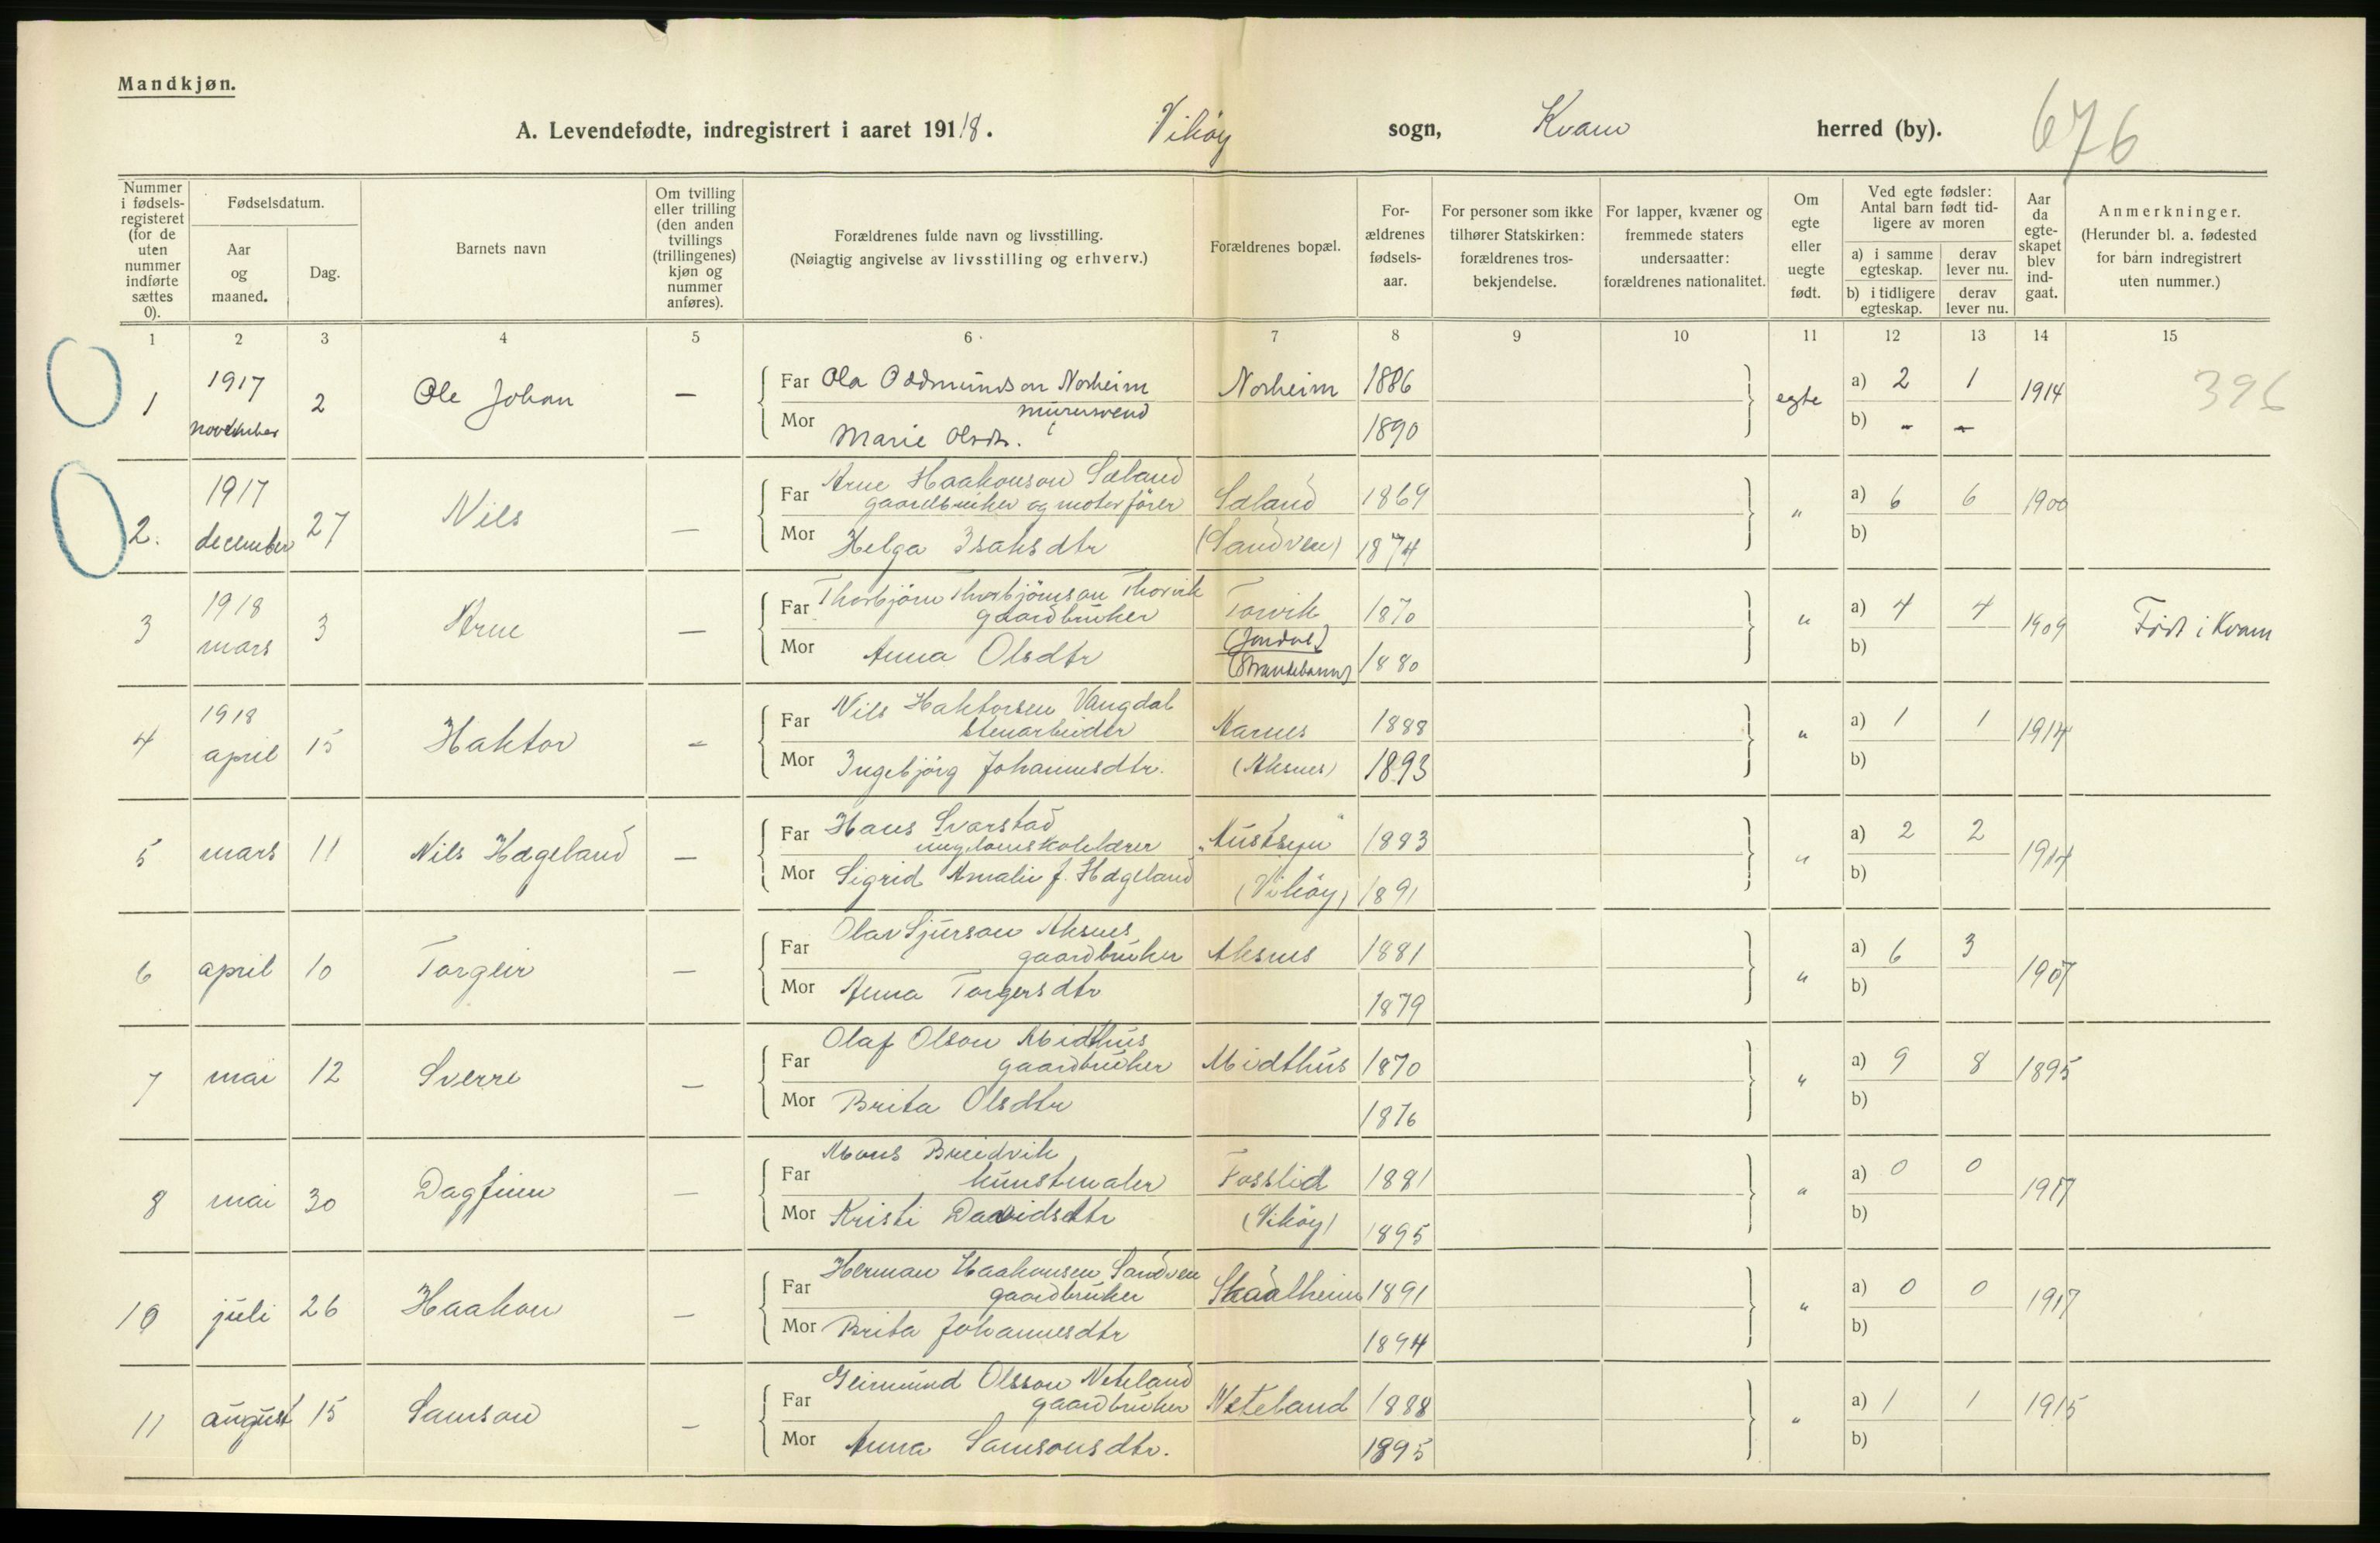 Mandkjøn.
A. Levendefødte, indregistrert i aaret 19118. Vikøy sogn, Kvam herred (by). 676
Nummer i fødsels-registeret (for de uten nummer indførte sættes 0).
Fødselsdatum.
Aar og maaned.
Dag.
Barnets navn
Om tvilling eller trilling (den anden tvillings (trillingenes) kjøn og nummer anføres).
Forældrenes fulde navn og livsstilling.
(Nøiagtig angivelse av livsstilling og erhverv.)
Forældrenes bopæl.
For-ældrenes fødsels-aar.
For personer som ikke tilhører Statskirken: forældrenes tros-bekjendelse.
For lapper, kvæner og fremmede staters undersaatter: forældrenes nationalitet.
Om egte eller uegte født.
Ved egte fødsler: Antal barn født tid-ligere av moren
a) i samme egteskap. derav lever nu.
b) i tidligere egteskap. derav lever nu.
Aar da egte-skapet blev ind-gaat.
Anmerkninger.
(Herunder bl. a. fødested for barn indregistrert uten nummer.)
1 2 3 4 5 6 7 8 9 10 11 12 13 14 15
1 1917 november 2 Ole Johan — Far Ola Oddmundson Norheim Norheim 1886 egte a) 2 1 1914 396
murersvend
Mor Marie Olsdtr. 1890 b) - -
2. 1917 december 27 Nils — Far Arne Haakonson Sæland Sæland 1869 " a) 6 6 1900
gaardbruker og motorfører
Mor Helga Isaksdtr (Sandven) 1874 b)
3 1918 mars 3 Arne — Far Thorbjörn Thorbjörnson Thorvik Torvik 1870 " a) 4 4 1909 Födt i Kvam
gaardbruker
Mor Anna Olsdtr (Jondal) (Strandebarm) 1880 b)
4 1918 april 15 Haktor — Far Nils Haktorsen Vangdal Aarnes 1888 " a) 1 1 1914
stenarbeider
Mor Ingebjörg Johannesdtr. (Aksnes) 1893 b)
5 mars 11 Nils Hægeland — Far Hans Svarstad "Austsyn" 1883 " a) 2 2 1914
ungdomskolelærer
Mor Sigrid Amalie f. Hægeland (Vikøy) 1891 b)
6 april 10 Torgeir — Far Olav Sjurson Aksnes Aksnes 1881 " a) 6 3 1907
gaardbruker
Mor Anna Torgersdtr 1879 b)
7 mai 12 Sverre — Far Olaf Olson Midthus Midthus 1870 " a) 9 8 1895
gaardbruker
Mor Brita Olsdtr 1876 b)
8 mai 30 Dagfinn — Far Mons Breidvik Fosslid 1881 " a) 0 0 1917
kunstmaler
Mor Kristi Davidsdtr (Vikøy) 1895 b)
10 juli 26 Haakon — Far Herman Haakonsen Sandven Skaalheim 1891 " a) 0 0 1917
gaardbruker
Mor Brita Johannesdtr 1894 b)
11 august 15 Samson — Far Geirmund Olsson Neteland Neteland 1888 " a) 1 1 1915
gaardbruker
Mor Anna Samsonsdtr. 1895 b)